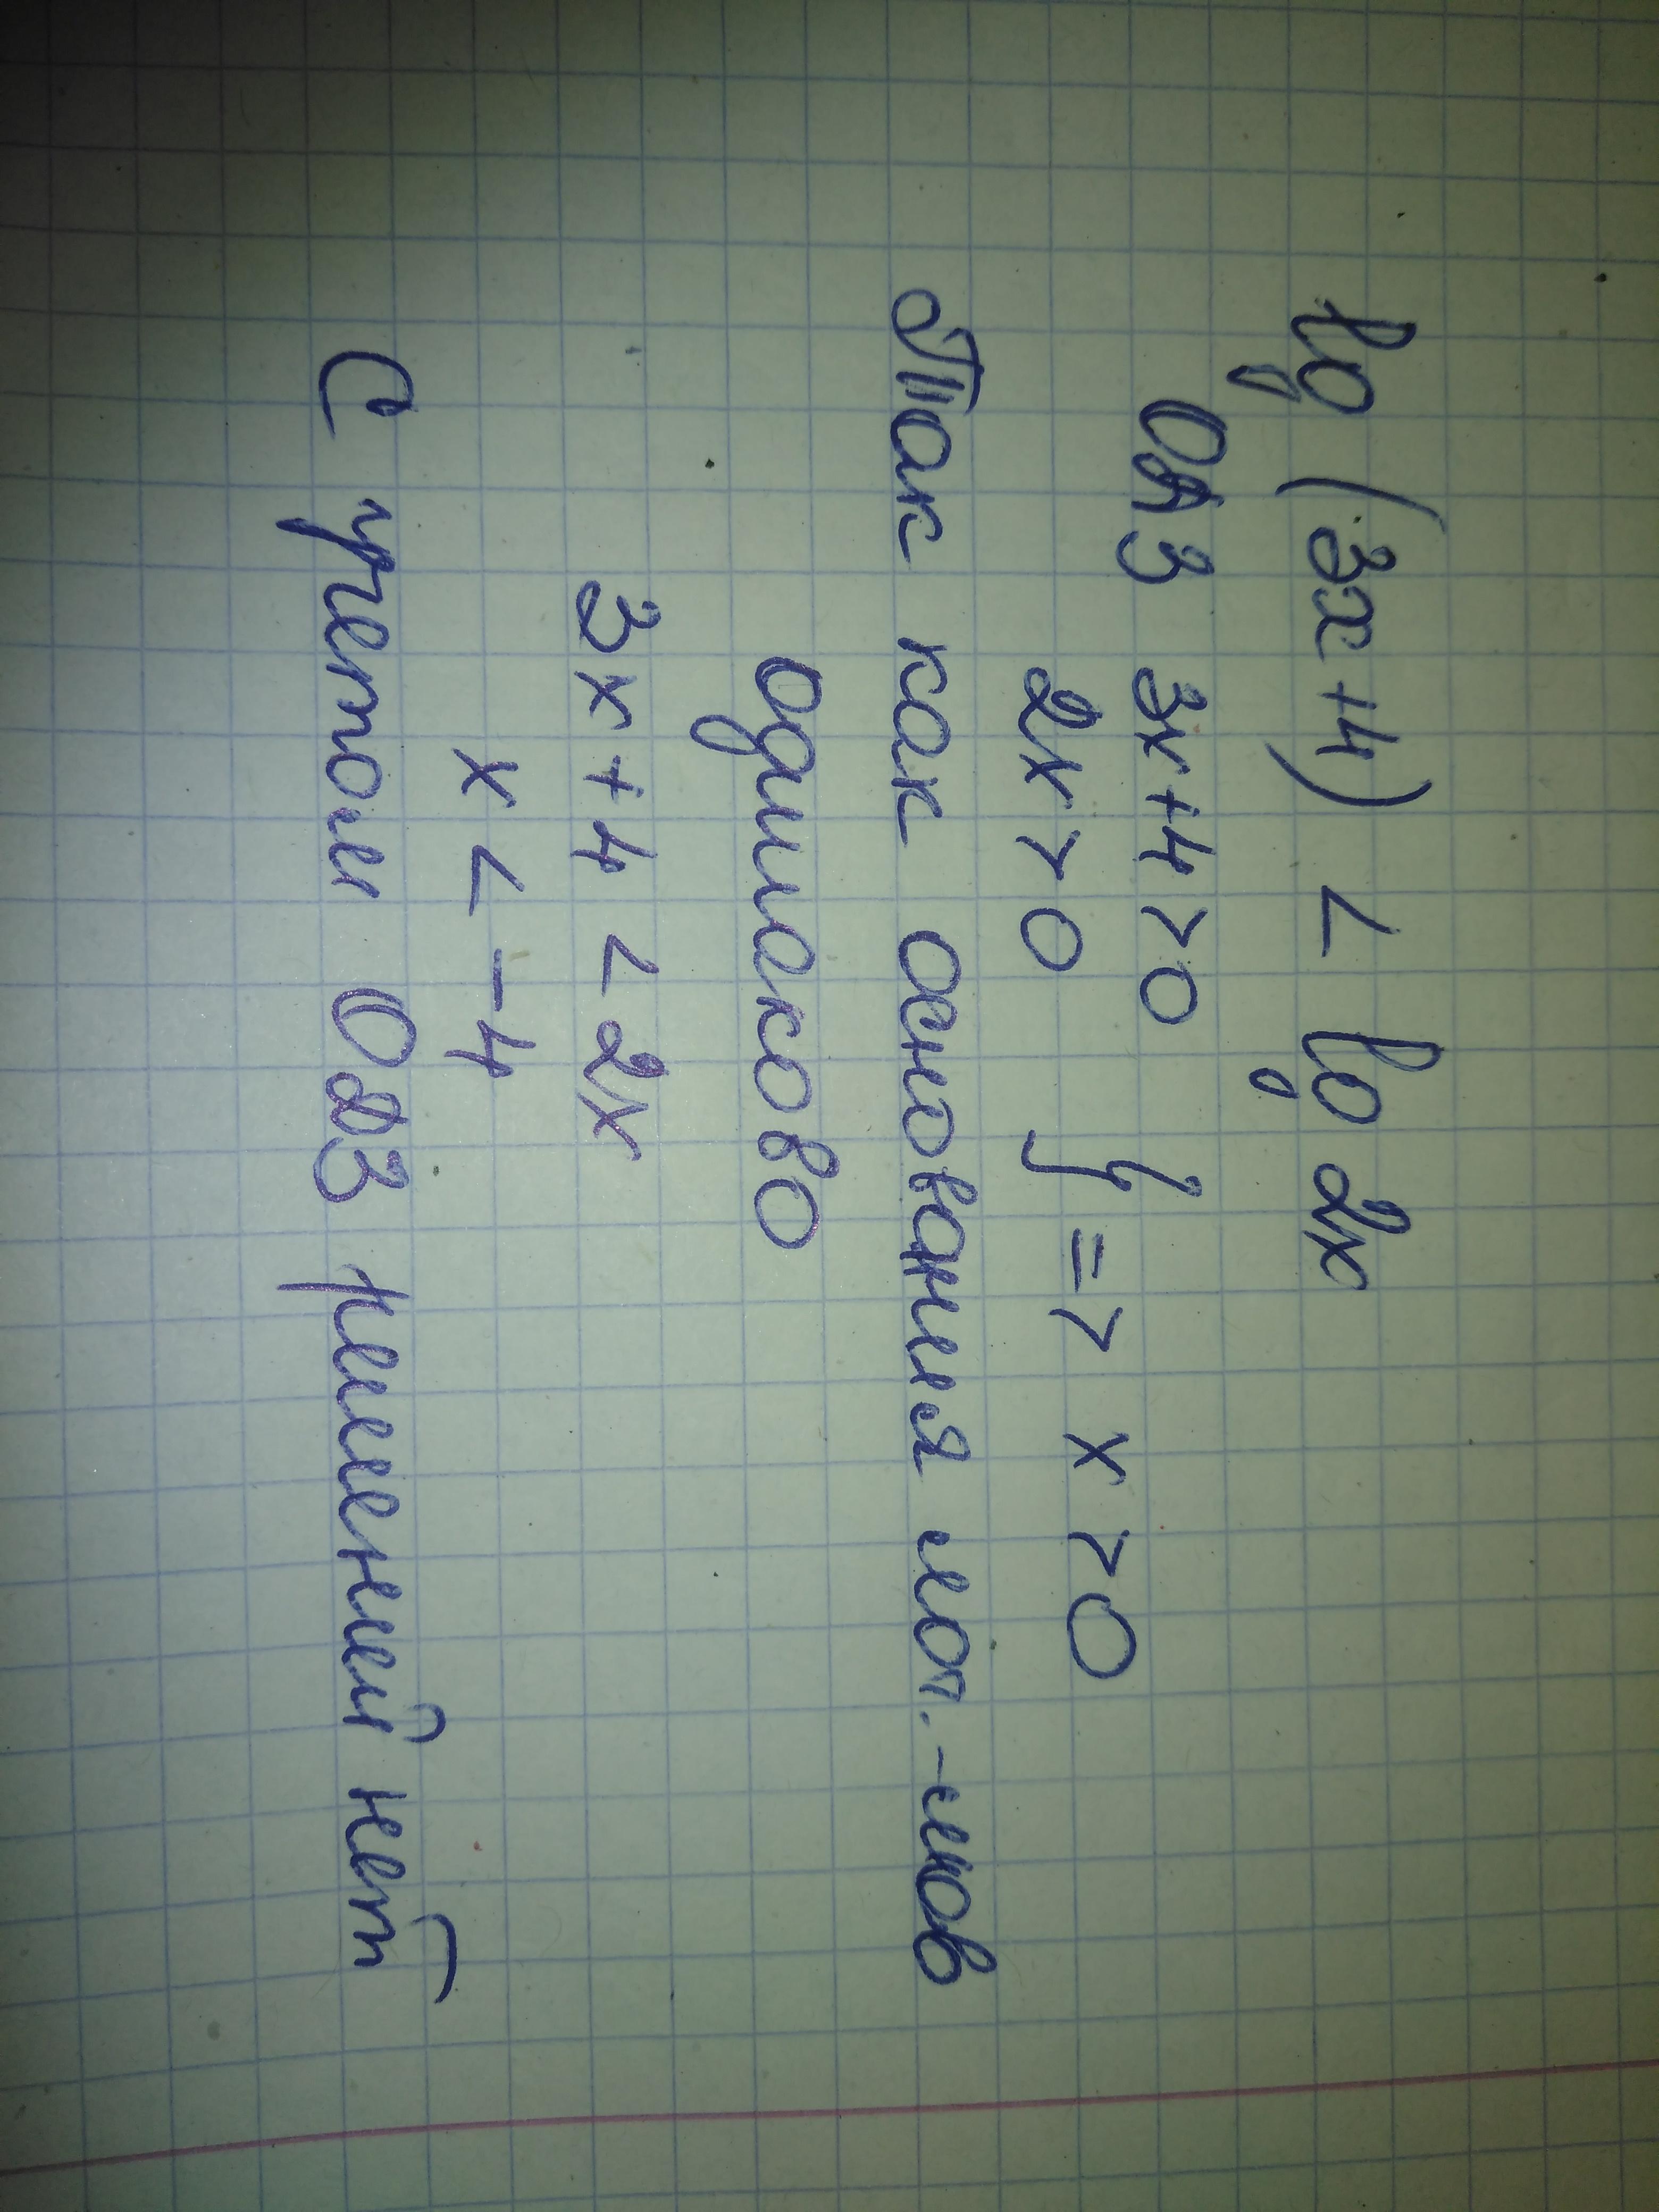 lg (3x+4) < lg 2x
ОДЗ 3x+4>0
2x>0 } => x>0
Так как основания лог.-мов
одинаково
3x+4<2x
x < -4
С учетом ОДЗ решений нет